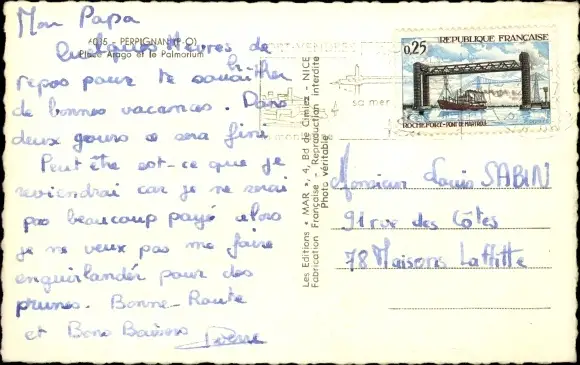 Mon Papa
6035 - PERPIGNAN (P-O)
Place Arago et le Palmarium
Quelques Heures de
repos pour te souhaiter
de bonnes vacances. Dans
deux jours ce sera fini.
Peut être est-ce que je
reviendrai car je ne serai
pas beaucoup payé alors
je ne veux pas me faire
enguirlander pour des
prunes. Bonne Route
et Bons Baisers
Les Editions "MAR", 4, Bd de Cimiez - NICE
Fabrication Française - Reproduction interdite
Photo véritable
PORT-VENDRES
sa mer
0,25
REPUBLIQUE FRANÇAISE
ROCHEFORT-PONT DE MARTROU
Monsieur Louis SABIN
91 rue des Côtes
78 Maisons Laffitte